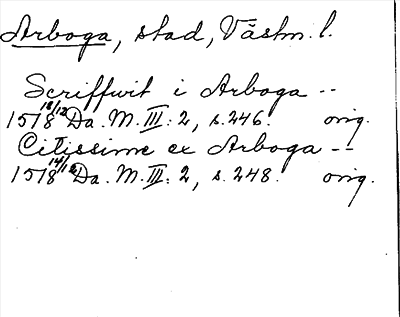 Arboga, stad, Västm. l.
Scriffwit i Arboga --
1518 18/12 Da. M. III: 2, s. 246. orig.
Citissime ex Arboga --
1518 14/12 Da. M. III: 2, s. 248. orig.